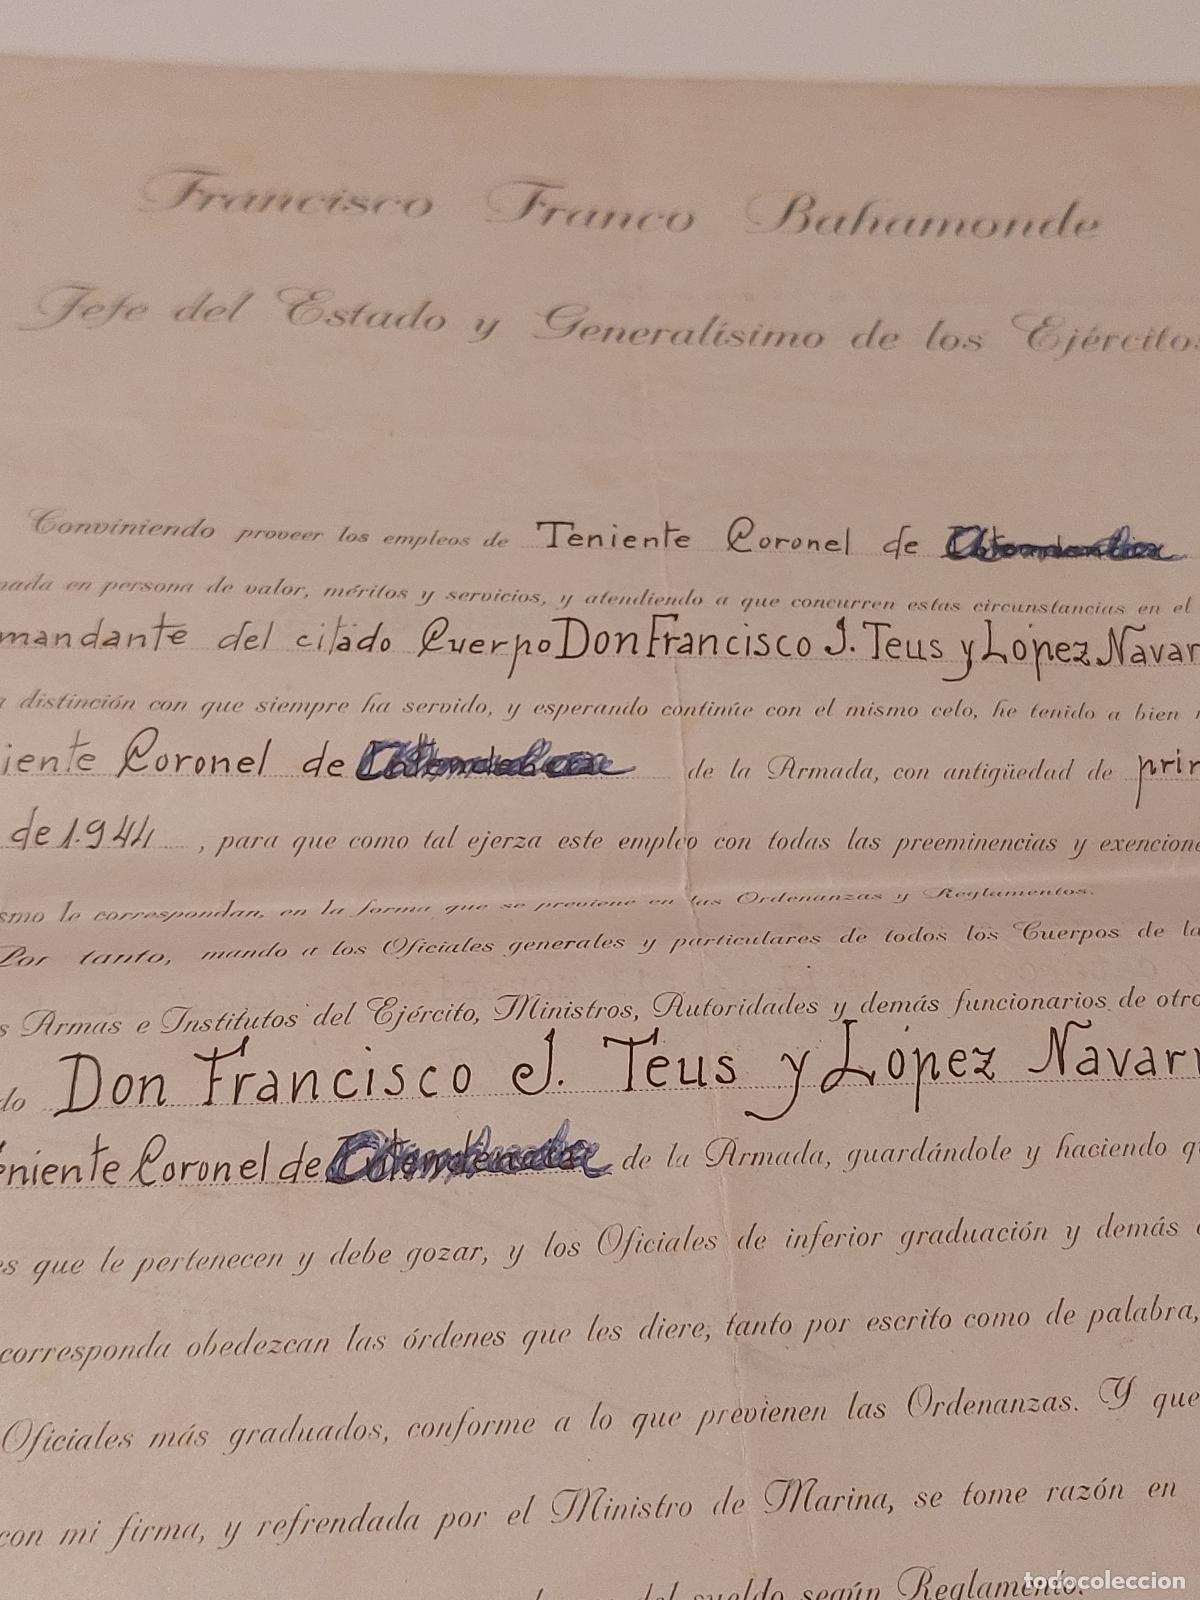 Francisco Franco Bahamonde
Jefe del Estado y Generalísimo de los Ejércitos
Conviniendo proveer los empleos de Teniente Coronel de
mada en persona de valor, méritos y servicios, y atendiendo a que concurren estas circunstancias en el
mandante del citado Cuerpo Don Francisco J. Teus y López Navar
a distinción con que siempre ha servido, y esperando continúe con el mismo celo, he tenido a bien
iente Coronel de de la Armada, con antigüedad de prir
de 1.944, para que como tal ejerza este empleo con todas las preeminencias y exencione
smo le correspondan, en la forma que se previene en las Ordenanzas y Reglamentos.
Por tanto, mando a los Oficiales generales y particulares de todos los Cuerpos de la
s Armas e Institutos del Ejército, Ministros, Autoridades y demás funcionarios de otro
do Don Francisco J. Teus y López Navarr
eniente Coronel de de la Armada, guardándole y haciendo q
es que le pertenecen y debe gozar, y los Oficiales de inferior graduación y demás
corresponda obedezcan las órdenes que les diere, tanto por escrito como de palabra,
Oficiales más graduados, conforme a lo que previenen las Ordenanzas. Y que
con mi firma, y refrendada por el Ministro de Marina, se tome razón en
del sueldo según Reglamento.
todocoleccion